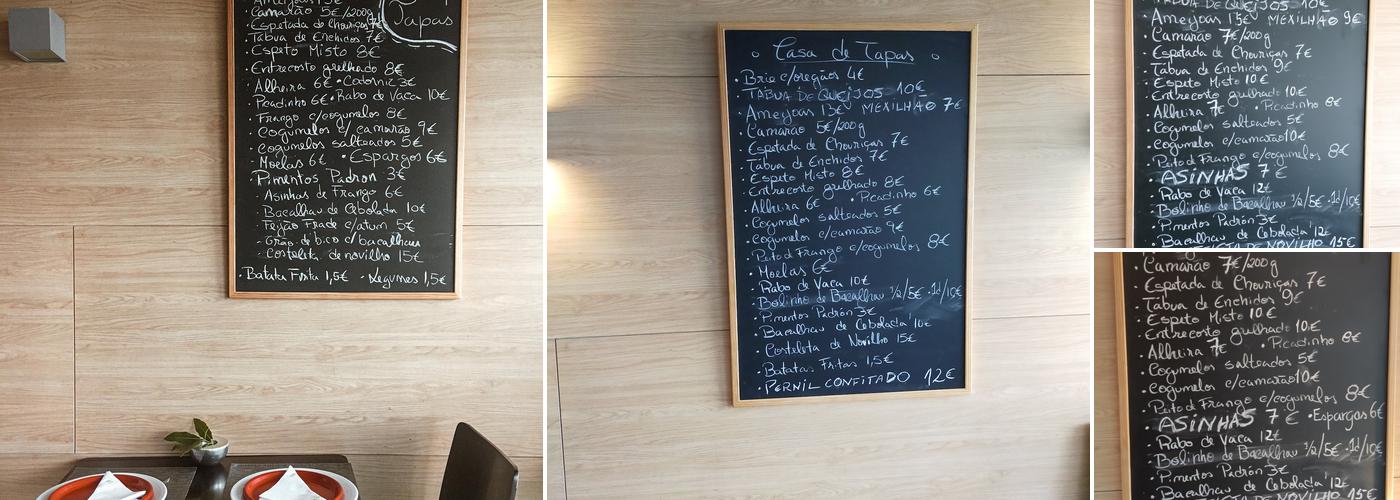 Camarão 5€/200g
Tapas
Espetada de Chouriças 7€
Tábua de Enchidos 7€
Espeto Misto 8€
Entrecosto grelhado 8€
Alheira 6€ • Codorniz 3€
Picadinho 6€ • Rabo de Vaca 10€
Frango c/cogumelos 8€
Cogumelos c/camarão 9€
Cogumelos salteados 5€
Moelas 6€ • Espargos 6€
Pimentos Padron 3€
Asinhas de Frango 6€
Bacalhau de Cebolada 10€
Feijão Frade c/atum 5€
Grão de bico c/bacalhau
Costelita de novilho 15€
Batata Frita 1,5€ - Legumes 1,5€
Casa de Tapas
Brie c/oregãos 4€
TÁBUA DE QUEIJOS 10€
Ameijoas 13€ MEXILHÃO 7€
Camarão 5€/200g
Espetada de Chouriças 7€
Tábua de Enchidos 7€
Espeto Misto 8€
Entrecosto grelhado 8€
Alheira 6€ • Picadinho 6€
Cogumelos salteados 5€
Cogumelos c/camarão 9€
Peito d Frango c/cogumelos 8€
Moelas 6€
Rabo de Vaca 10€
Bolinho de Bacalhau 1/2/5€ -1d/10€
Pimentos Padrón 3€
Bacalhau de Cebolada 10€
Costeleta de Novilho 15€
Batatas Fritas 1,5€
PERNIL CONFITADO 12€
TÁBUA DE QUEIJOS 10€
Ameijoas 15€ MEXILHÃO 9€
Camarão 7€/200g
Espetada de Chouriças 7€
Tábua de Enchidos 9€
Espeto Misto 10€
Entrecosto grelhado 10€
Alheira 7€ • Picadinho 8€
Cogumelos salteados 5€
Cogumelos c/camarão 10€
Peito d Frango c/cogumelos 8€
ASINHAS 7€
Rabo de Vaca 12€
Bolinho de Bacalhau 1/2/5€ -1d/10€
Pimentos Padrón 3€
Bacalhau de Cebolada 12€
NOVILHO 15€
Camarão 7€/200g
Espetada de Chouriças 7€
Tábua de Enchidos 9€
Espeto Misto 10€
Entrecosto grelhado 10€
Alheira 7€ • Picadinho 8€
Cogumelos salteados 5€
Cogumelos c/camarão 10€
Peito d Frango c/cogumelos 8€
ASINHAS 7€ • Espargos 6€
Rabo de Vaca 12€
Bolinho de Bacalhau 1/2/5€ -1d/10€
Pimentos Padrón 3€
Bacalhau de Cebolada 12€
NOVILHO 15€